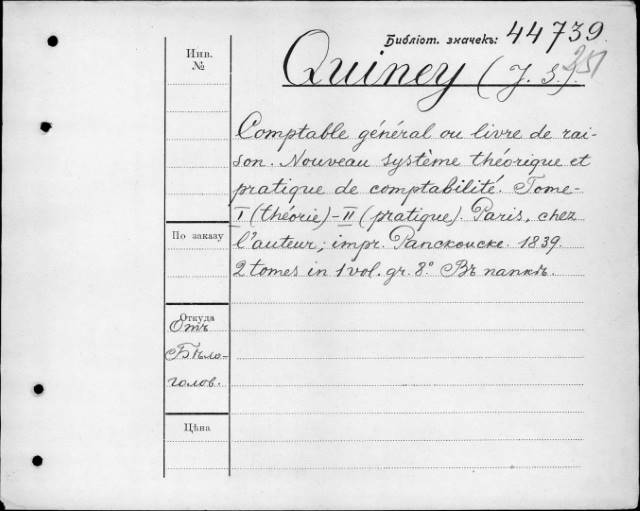 Библіот. значекъ: 44739.
251
Инв.
№
Quiney (J. S.).
Comptable général ou livre de rai-
son. Nouveau système théorique et
pratique de comptabilité. Tome
I (théorie) - II (pratique). Paris, chez
l'auteur; impr. Panckoucke. 1839.
2 tomes in 1 vol. gr. 8.° Въ папкѣ.
По заказу
Откуда
Отъ
Бѣло-
голов.
Цѣна